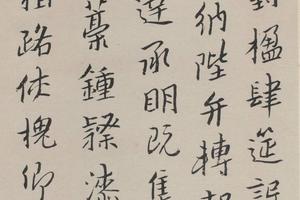 對楹肆筵設
納陛弁轉疑
達承明既集
藁鍾隸漆
相路俠槐卿